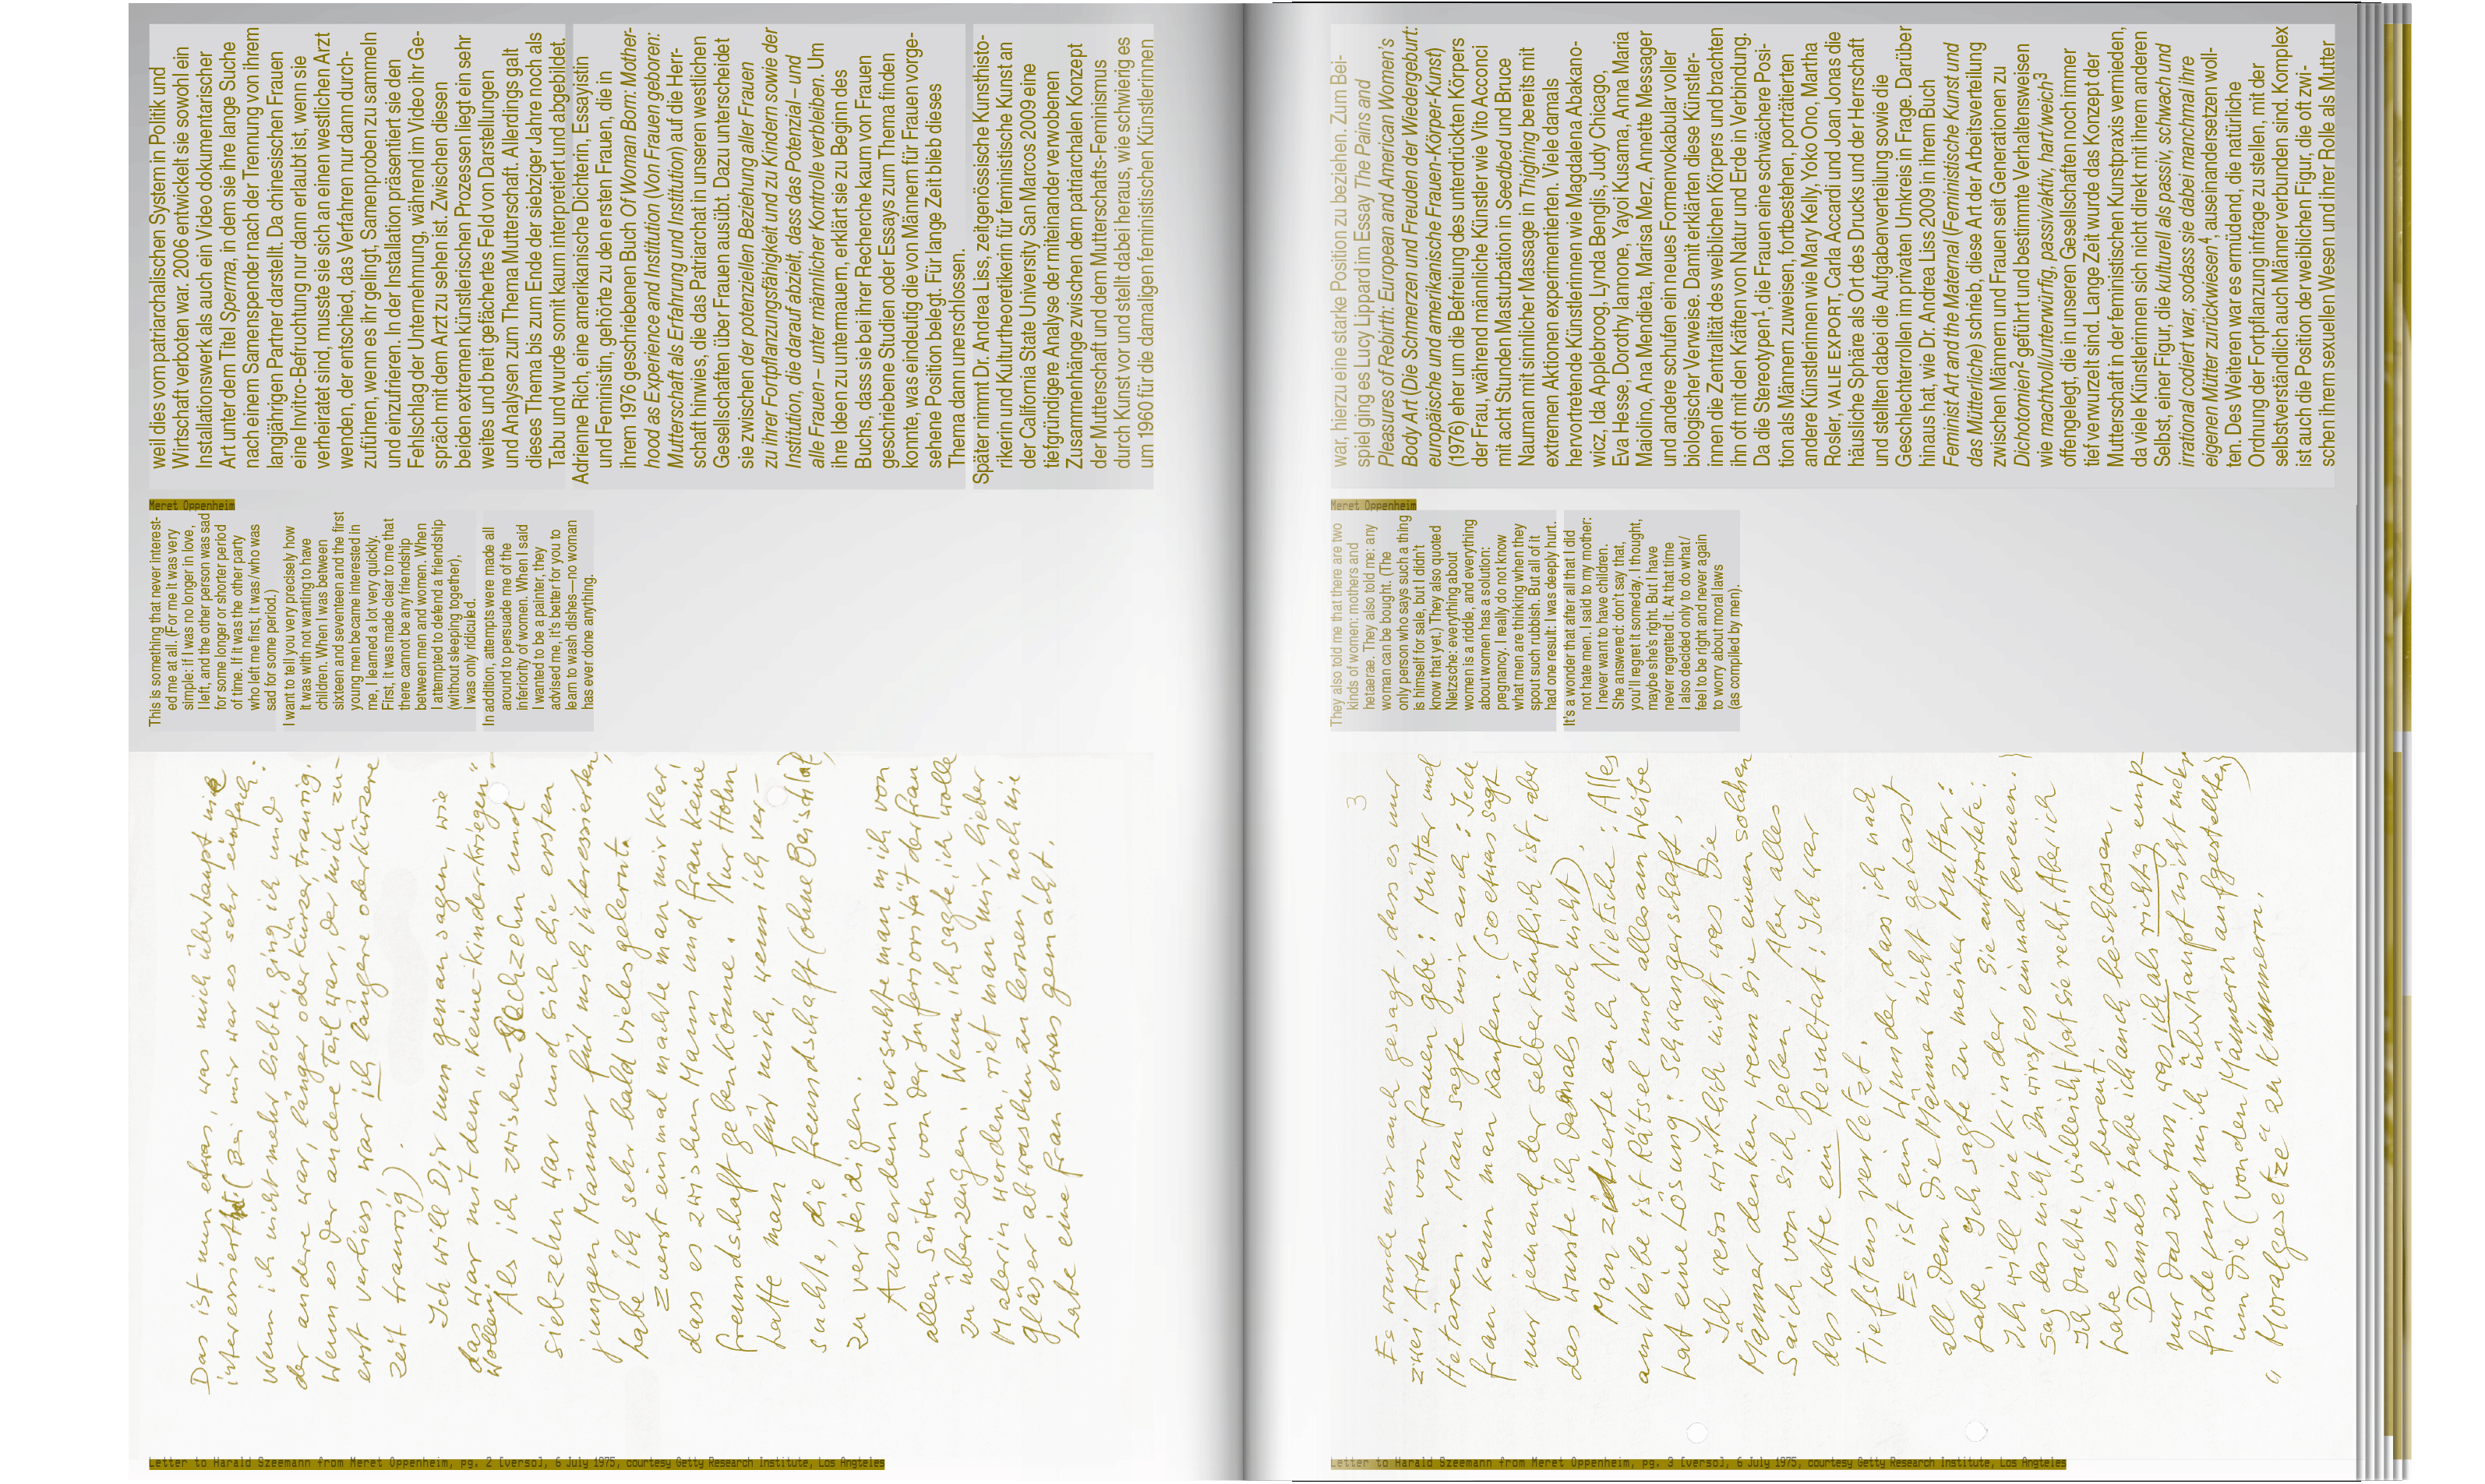 weil dies vom patriarchalischen System in Politik und
Wirtschaft verboten war. 2006 entwickelt sie sowohl ein
Installationswerk als auch ein Video dokumentarischer
Art unter dem Titel Sperma, in dem sie ihre lange Suche
nach einem Samenspender nach der Trennung von ihrem
langjährigen Partner darstellt. Da chinesischen Frauen
eine Invitro-Befruchtung nur dann erlaubt ist, wenn sie
verheiratet sind, musste sie sich an einen westlichen Arzt
wenden, der entschied, das Verfahren nur dann durch-
zuführen, wenn es ihr gelingt, Samenproben zu sammeln
und einzufrieren. In der Installation präsentiert sie den
Fehlschlag der Unternehmung, während im Video ihr Ge-
spräch mit dem Arzt zu sehen ist. Zwischen diesen
beiden extremen künstlerischen Prozessen liegt ein sehr
weites und breit gefächertes Feld von Darstellungen
und Analysen zum Thema Mutterschaft. Allerdings galt
dieses Thema bis zum Ende der siebziger Jahre noch als
Tabu und wurde somit kaum interpretiert und abgebildet.
Adrienne Rich, eine amerikanische Dichterin, Essayistin
und Feministin, gehörte zu den ersten Frauen, die in
ihrem 1976 geschriebenen Buch Of Woman Born: Mother-
hood as Experience and Institution (Von Frauen geboren:
Mutterschaft als Erfahrung und Institution) auf die Herr-
schaft hinwies, die das Patriarchat in unseren westlichen
Gesellschaften über Frauen ausübt. Dazu unterscheidet
sie zwischen der potenziellen Beziehung aller Frauen
zu ihrer Fortpflanzungsfähigkeit und zu Kindern sowie der
Institution, die darauf abzielt, dass das Potenzial – und
alle Frauen – unter männlicher Kontrolle verbleiben. Um
ihre Ideen zu untermauern, erklärt sie zu Beginn des
Buchs, dass sie bei ihrer Recherche kaum von Frauen
geschriebene Studien oder Essays zum Thema finden
konnte, was eindeutig die von Männern für Frauen vorge-
sehene Position belegt. Für lange Zeit blieb dieses
Thema dann unerschlossen.
Später nimmt Dr. Andrea Liss, zeitgenössische Kunsthisto-
rikerin und Kulturtheoretikerin für feministische Kunst an
der California State University San Marcos 2009 eine
tiefgründigere Analyse der miteinander verwobenen
Zusammenhänge zwischen dem patriarchalen Konzept
der Mutterschaft und dem Mutterschafts-Feminismus
durch Kunst vor und stellt dabei heraus, wie schwierig es
um 1960 für die damaligen feministischen Künstlerinnen
Meret Oppenheim
This is something that never interest-
ed me at all. (For me it was very
simple: if I was no longer in love,
I left, and the other person was sad
for some longer or shorter period
of time. If it was the other party
who left me first, it was I who was
sad for some period.)
I want to tell you very precisely how
it was with not wanting to have
children. When I was between
sixteen and seventeen and the first
young men became interested in
me, I learned a lot very quickly.
First, it was made clear to me that
there cannot be any friendship
between men and women. When
I attempted to defend a friendship
(without sleeping together),
I was only ridiculed.
In addition, attempts were made all
around to persuade me of the
inferiority of women. When I said
I wanted to be a painter, they
advised me, it's better for you to
learn to wash dishes—no woman
has ever done anything.
Das ist nun etwas, was mich überhaupt nie
interessiert hat. (Bei mir war es sehr einfach:
Wenn ich nicht mehr liebte, ging ich und
der andere war, länger oder kürzer, traurig.
Wenn es der andere Teil war, der mich zu-
erst verliess war ich längere oder kürzere
Zeit traurig).
Ich will Dir nun genau sagen, wie
das war mit dem "keine-Kinder-kriegen"-
wollen.
Als ich zwischen sechzehn und
siebzehn war und sich die ersten
jungen Männer für mich interessierten,
habe ich sehr bald vieles gelernt.
Zuerst einmal machte man mir klar,
dass es zwischen Mann und Frau keine
Freundschaft geben könne. Nur Hohn
hatte man für mich, wenn ich ver-
suchte, die Freundschaft (ohne Beischlaf)
zu verteidigen.
Ausserdem versuchte man mich von
allen Seiten von der Inferiorität der Frau
zu überzeugen. Wenn ich sagte, ich wolle
Malerin werden, riet man mir, lieber
Gläser abwaschen zu lernen, noch nie
habe eine Frau etwas gemacht.
Letter to Harald Szeemann from Meret Oppenheim, pg. 2 [verso], 6 July 1975, courtesy Getty Research Institute, Los Angteles
war, hierzu eine starke Position zu beziehen. Zum Bei-
spiel ging es Lucy Lippard im Essay The Pains and
Pleasures of Rebirth: European and American Women's
Body Art (Die Schmerzen und Freuden der Wiedergeburt:
europäische und amerikanische Frauen-Körper-Kunst)
(1976) eher um die Befreiung des unterdrückten Körpers
der Frau, während männliche Künstler wie Vito Acconci
mit acht Stunden Masturbation in Seedbed und Bruce
Nauman mit sinnlicher Massage in Thighing bereits mit
extremen Aktionen experimentierten. Viele damals
hervortretende Künstlerinnen wie Magdalena Abakano-
wicz, Ida Applebroog, Lynda Benglis, Judy Chicago,
Eva Hesse, Dorothy Iannone, Yayoi Kusama, Anna Maria
Maiolino, Ana Mendieta, Marisa Merz, Annette Messager
und andere schufen ein neues Formenvokabular voller
biologischer Verweise. Damit erklärten diese Künstler-
innen die Zentralität des weiblichen Körpers und brachten
ihn oft mit den Kräften von Natur und Erde in Verbindung.
Da die Stereotypen¹, die Frauen eine schwächere Posi-
tion als Männern zuweisen, fortbestehen, porträtierten
andere Künstlerinnen wie Mary Kelly, Yoko Ono, Martha
Rosler, VALIE EXPORT, Carla Accardi und Joan Jonas die
häusliche Sphäre als Ort des Drucks und der Herrschaft
und stellten dabei die Aufgabenverteilung sowie die
Geschlechterrollen im privaten Umkreis in Frage. Darüber
hinaus hat, wie Dr. Andrea Liss 2009 in ihrem Buch
Feminist Art and the Maternal (Feministische Kunst und
das Mütterliche) schrieb, diese Art der Arbeitsverteilung
zwischen Männern und Frauen seit Generationen zu
Dichotomien² geführt und bestimmte Verhaltensweisen
wie machtvoll/unterwürfig, passiv/aktiv, hart/weich³
offengelegt, die in unseren Gesellschaften noch immer
tief verwurzelt sind. Lange Zeit wurde das Konzept der
Mutterschaft in der feministischen Kunstpraxis vermieden,
da viele Künstlerinnen sich nicht direkt mit ihrem anderen
Selbst, einer Figur, die kulturell als passiv, schwach und
irrational codiert war, sodass sie dabei manchmal ihre
eigenen Mütter zurückwiesen⁴, auseinandersetzen woll-
ten. Des Weiteren war es ermüdend, die natürliche
Ordnung der Fortpflanzung infrage zu stellen, mit der
selbstverständlich auch Männer verbunden sind. Komplex
ist auch die Position der weiblichen Figur, die oft zwi-
schen ihrem sexuellen Wesen und ihrer Rolle als Mutter
Meret Oppenheim
They also told me that there are two
kinds of women: mothers and
hetaerae. They also told me: any
woman can be bought. (The
only person who says such a thing
is himself for sale, but I didn't
know that yet.) They also quoted
Nietzsche: everything about
women is a riddle, and everything
about women has a solution:
pregnancy. I really do not know
what men are thinking when they
spout such rubbish. But all of it
had one result: I was deeply hurt.
It's a wonder that after all that I did
not hate men. I said to my mother:
I never want to have children.
She answered: don't say that,
you'll regret it someday. I thought,
maybe she's right. But I have
never regretted it. At that time
I also decided only to do what I
feel to be right and never again
to worry about moral laws
(as compiled by men).
3
Es wurde mir auch gesagt, dass es nur
zwei Arten von Frauen gebe: Mütter und
Hetären. Man sagte mir auch: Jede
Frau kann man kaufen. (so etwas sagt
nur jemand, der selber käuflich ist, aber
das wusste ich damals noch nicht).
Man zitierte auch Nietsche: Alles
am Weibe ist Rätsel und alles am Weibe
hat eine Lösung: Schwangerschaft.
Ich weiss wirklich nicht, was die
Männer denken, wenn sie einen solchen
Saich von sich geben. Aber alles
das hatte ein Resultat: Ich war
tiefstens verletzt.
Es ist ein Wunder, dass ich nach
all dem die Männer nicht gehasst
habe. Ich sagte zu meiner Mutter:
Ich will nie Kinder. Sie antwortete:
Sag das nicht. Du wirst es einmal bereuen.)
Ich dachte, vielleicht hat sie recht. Aber ich
habe es nie bereut.
Damals habe ich auch beschlossen,
nur das zu tun, was ich als richtig emp-
finde und mich überhaupt nicht mehr
um die (von den Männern aufgestellten)
"Moralgesetze" zu kümmern.
Letter to Harald Szeemann from Meret Oppenheim, pg. 3 [verso], 6 July 1975, courtesy Getty Research Institute, Los Angteles